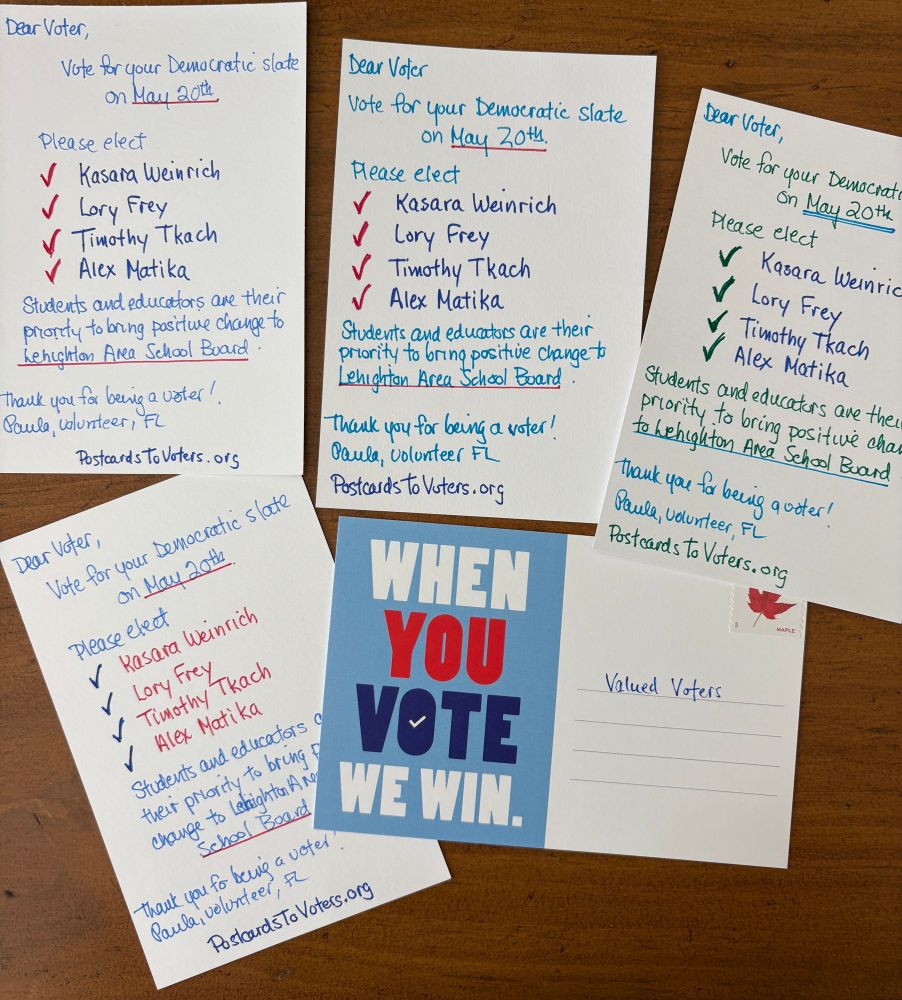 Dear Voter,
Vote for your Democratic slate
on May 20th.
Please elect
✓ Kasara Weinrich
✓ Lory Frey
✓ Timothy Tkach
✓ Alex Matika
Students and educators are their
priority to bring positive change to
Lehighton Area School Board.
Thank you for being a voter!
Paula, volunteer, FL
PostcardsToVoters.org
Dear Voter
Vote for your Democratic slate
on May 20th.
Please elect
✓ Kasara Weinrich
✓ Lory Frey
✓ Timothy Tkach
✓ Alex Matika
Students and educators are their
priority to bring positive change to
Lehighton Area School Board.
Thank you for being a voter!
Paula, volunteer FL
PostcardsToVoters.org
Dear Voter,
Vote for your Democrati
on May 20th
Please elect
✓ Kasara Weinric
✓ Lory Frey
✓ Timothy Tkach
✓ Alex Matika
Students and educators are thei
priority to bring positive chan
to Lehighton Area School Board
Thank you for being a voter!
Paula, volunteer, FL
PostcardsToVoters.org
Dear Voter,
Vote for your Democratic slate
on May 20th.
Please elect
✓ Kasara Weinrich
✓ Lory Frey
✓ Timothy Tkach
✓ Alex Matika
Students and educators a
their priority to bring
change to Lehighton Are
School Board
Thank you for being a voter!
Paula, volunteer, FL
PostcardsToVoters.org
WHEN
YOU
VOTE
WE WIN.
MAPLE
Valued Voters